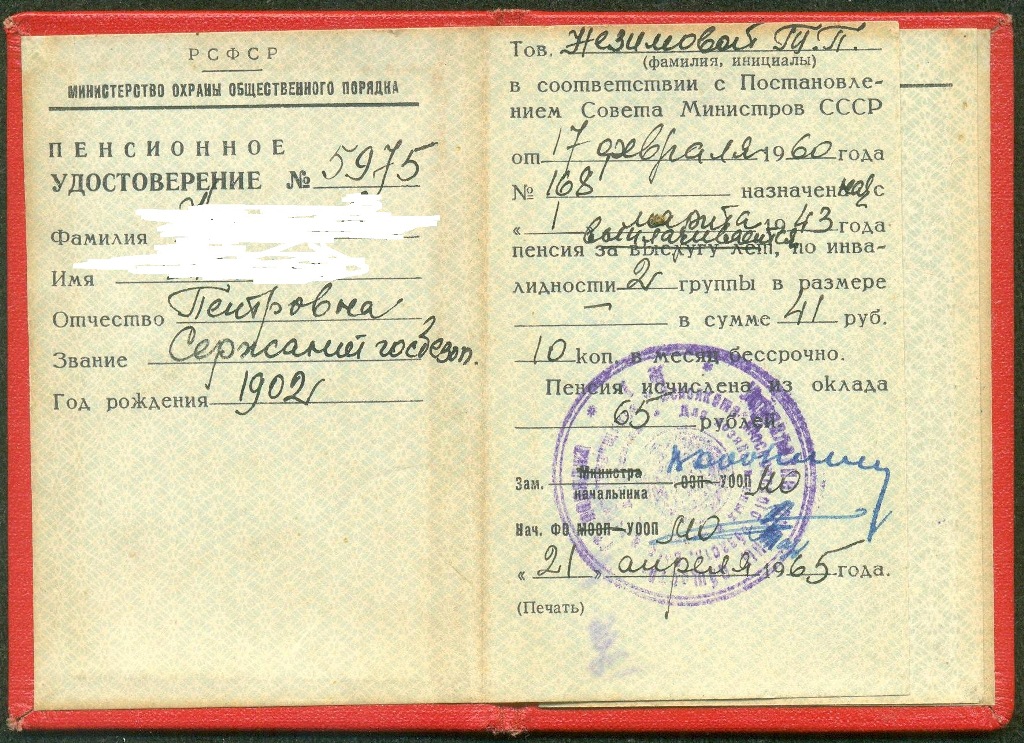 РСФСР
МИНИСТЕРСТВО ОХРАНЫ ОБЩЕСТВЕННОГО ПОРЯДКА
ПЕНСИОННОЕ
УДОСТОВЕРЕНИЕ № 5975
Фамилия
Имя
Отчество Петровна
Звание Сержант госбезоп.
Год рождения 1902
Тов. Незимовой П.
(фамилия, инициалы)
в соответствии с Постановле-
нием Совета Министров СССР
от 17 февраля 1960 года
№ 168 назначена с
« 1 марта 1943 года
выплачивается
пенсия за выслугу лет, по инва-
лидности 2 группы в размере
— в сумме 41 руб.
10 коп. в месяц бессрочно.
Пенсия исчислена из оклада
65 рублей.
Зам. Министра
начальника ООП УООП МО
Нач. ФО МООП—УООП МО
« 21 » апреля 1965 года.
(Печать)